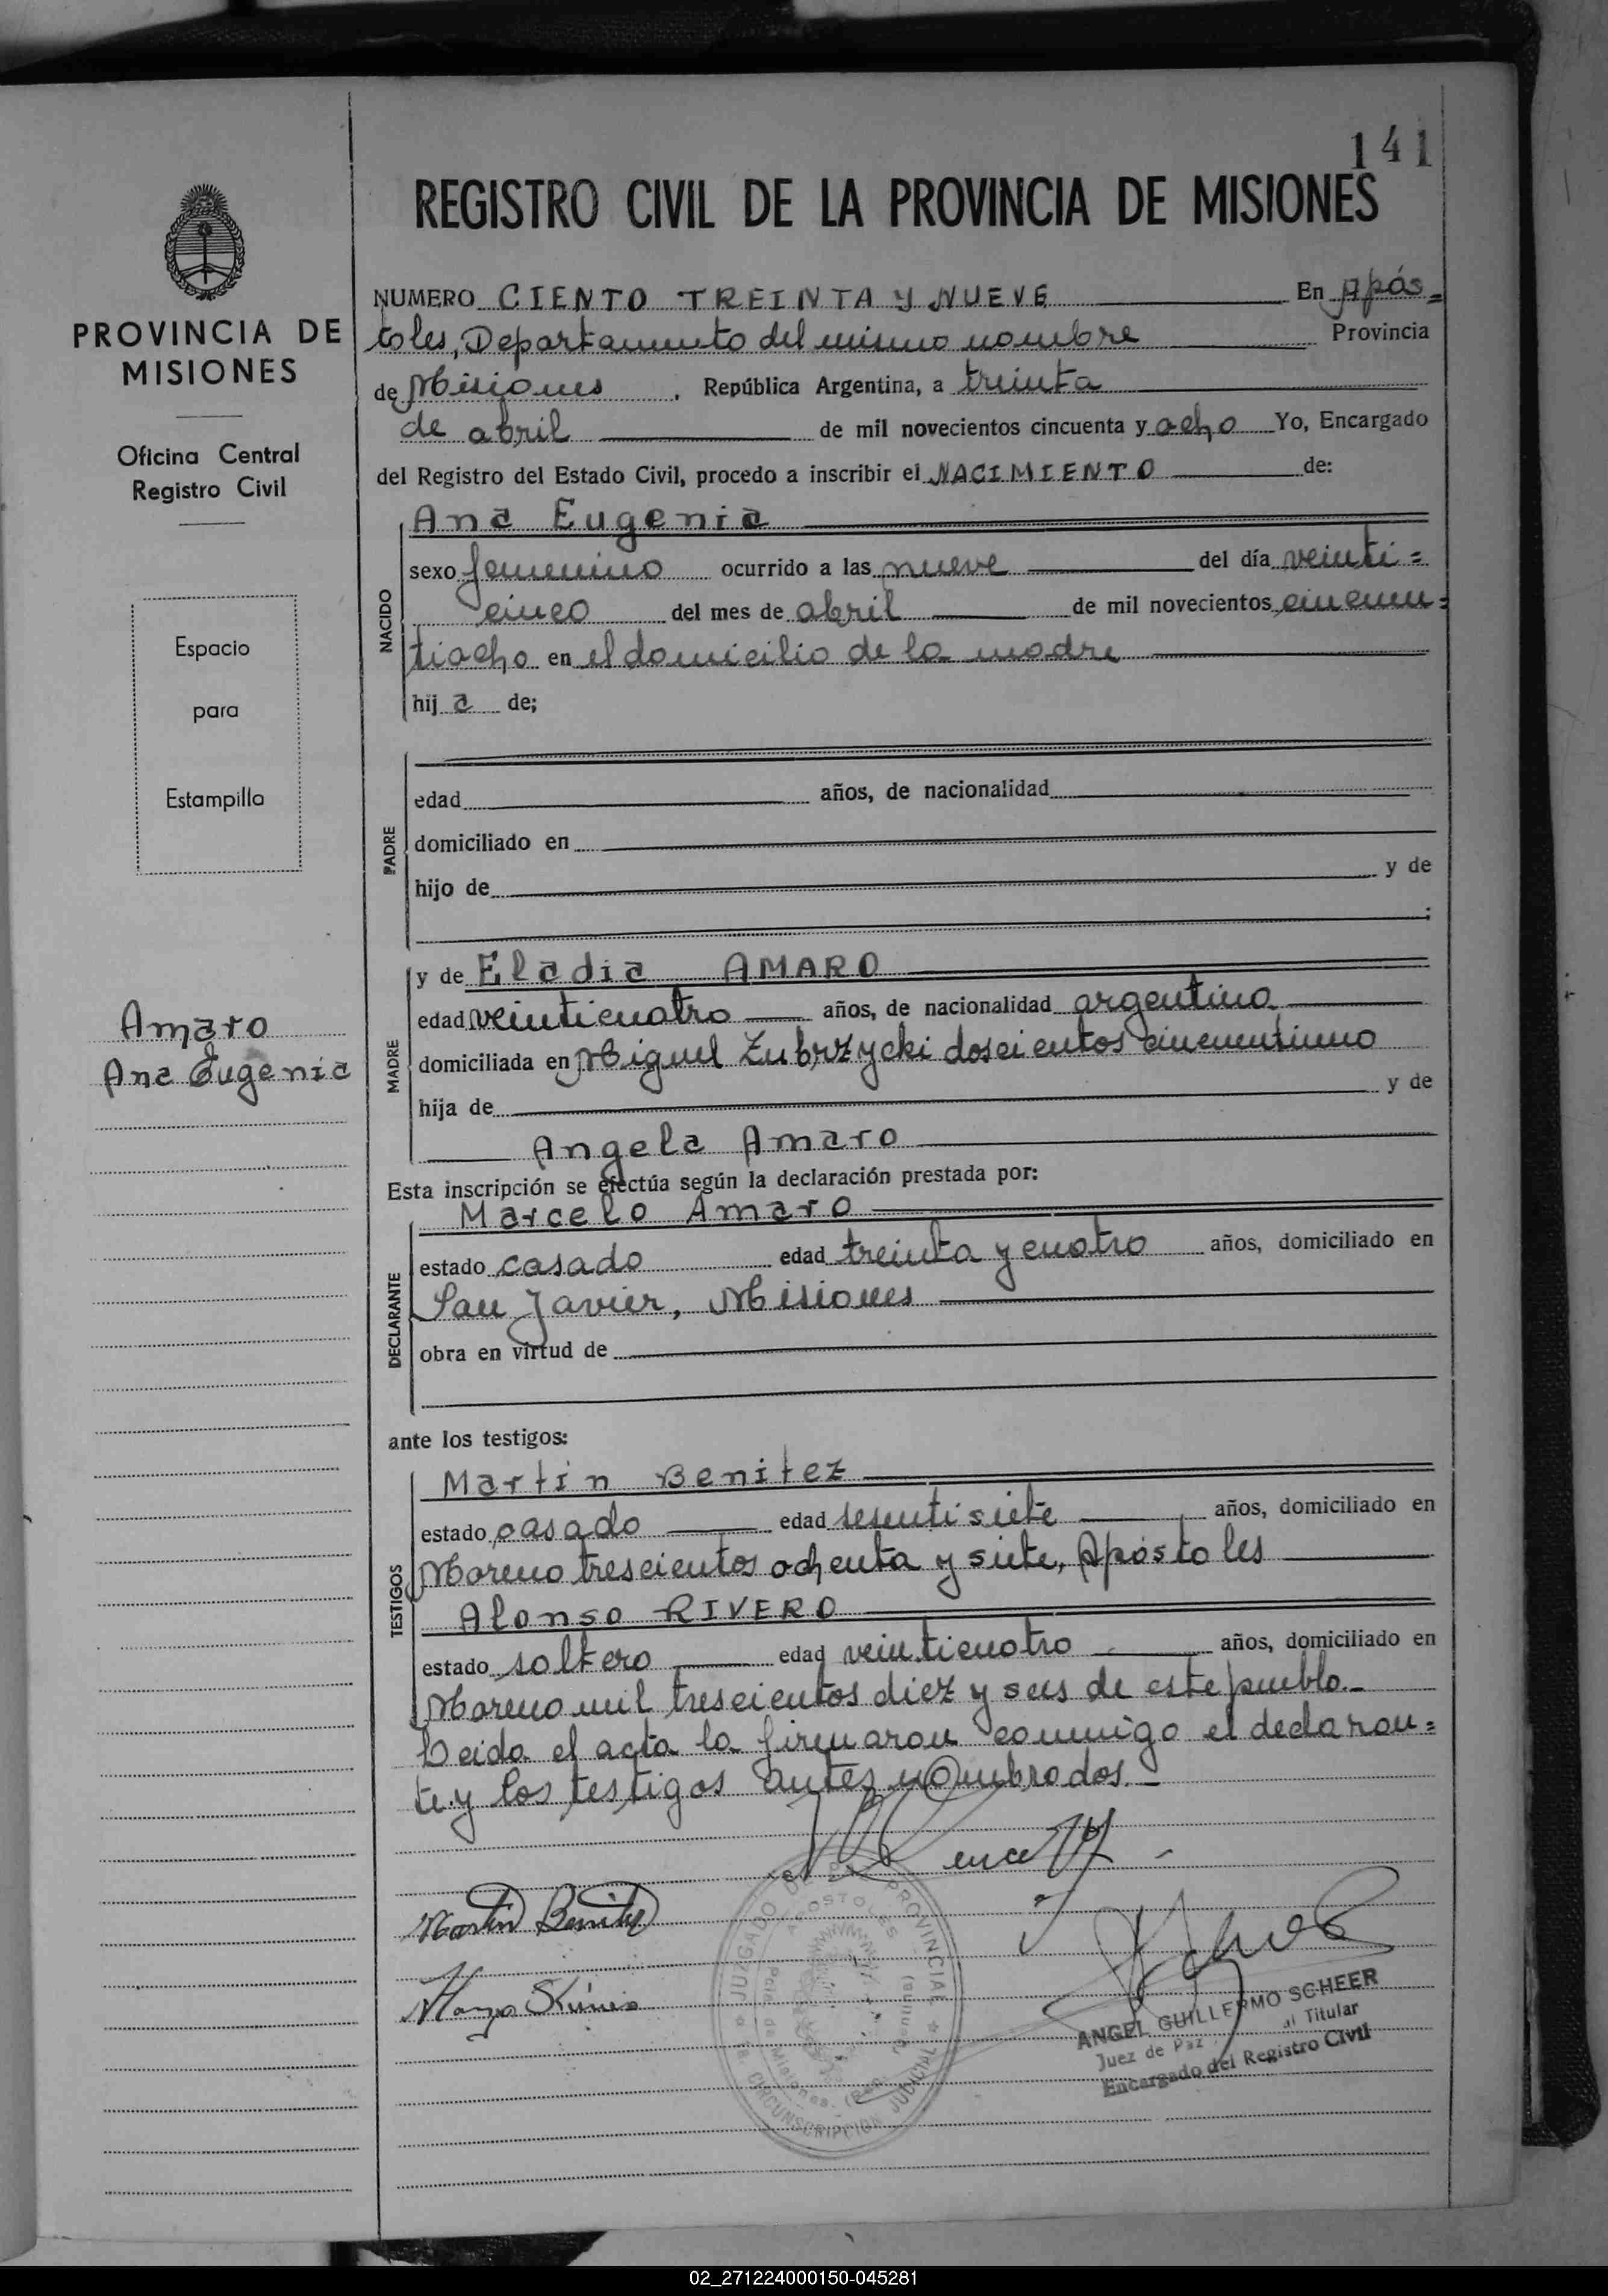 141
REGISTRO CIVIL DE LA PROVINCIA DE MISIONES
PROVINCIA DE
MISIONES
Oficina Central
Registro Civil
Espacio
para
Estampilla
Amaro
Ana Eugenia
NUMERO CIENTO TREINTA Y NUEVE En Após=
toles, Departamento del mismo nombre Provincia
de Misiones, República Argentina, a treinta
de abril de mil novecientos cincuenta y ocho Yo, Encargado
del Registro del Estado Civil, procedo a inscribir el NACIMIENTO de:
NACIDO
Ana Eugenia
sexo femenino ocurrido a las nueve del día veinti=
cinco del mes de abril de mil novecientos cincuen=
tiocho en el domicilio de la madre
hij a de;
PADRE
edad años, de nacionalidad
domiciliado en
hijo de y de
;
MADRE
y de Eladia AMARO
edad veinticuatro años, de nacionalidad argentina
domiciliada en Miguel Zubrzycki doscientos cincuentiuno
hija de y de
Angela Amaro
Esta inscripción se efectúa según la declaración prestada por:
DECLARANTE
Marcelo Amaro
estado casado edad treinta y cuatro años, domiciliado en
San Javier, Misiones
obra en virtud de
ante los testigos:
TESTIGOS
Martin Benitez
estado casado edad sesentisiete años, domiciliado en
Moreno trescientos ochenta y siete, Apóstoles
Alonso RIVERO
estado soltero edad veinticuatro años, domiciliado en
Moreno mil trescientos diez y seis de este pueblo.-
Leida el acta la firmaron conmigo el declaran=
te y los testigos antes nombrados.-
Martin Benitez
JUZGADO DE PROVINCIAL
APOSTOLES
CIRCUNSCRIPCION JUDICIAL
ANGEL GUILLERMO SCHEER
Juez de Paz Titular
Encargado del Registro Civil
02_271224000150-045281